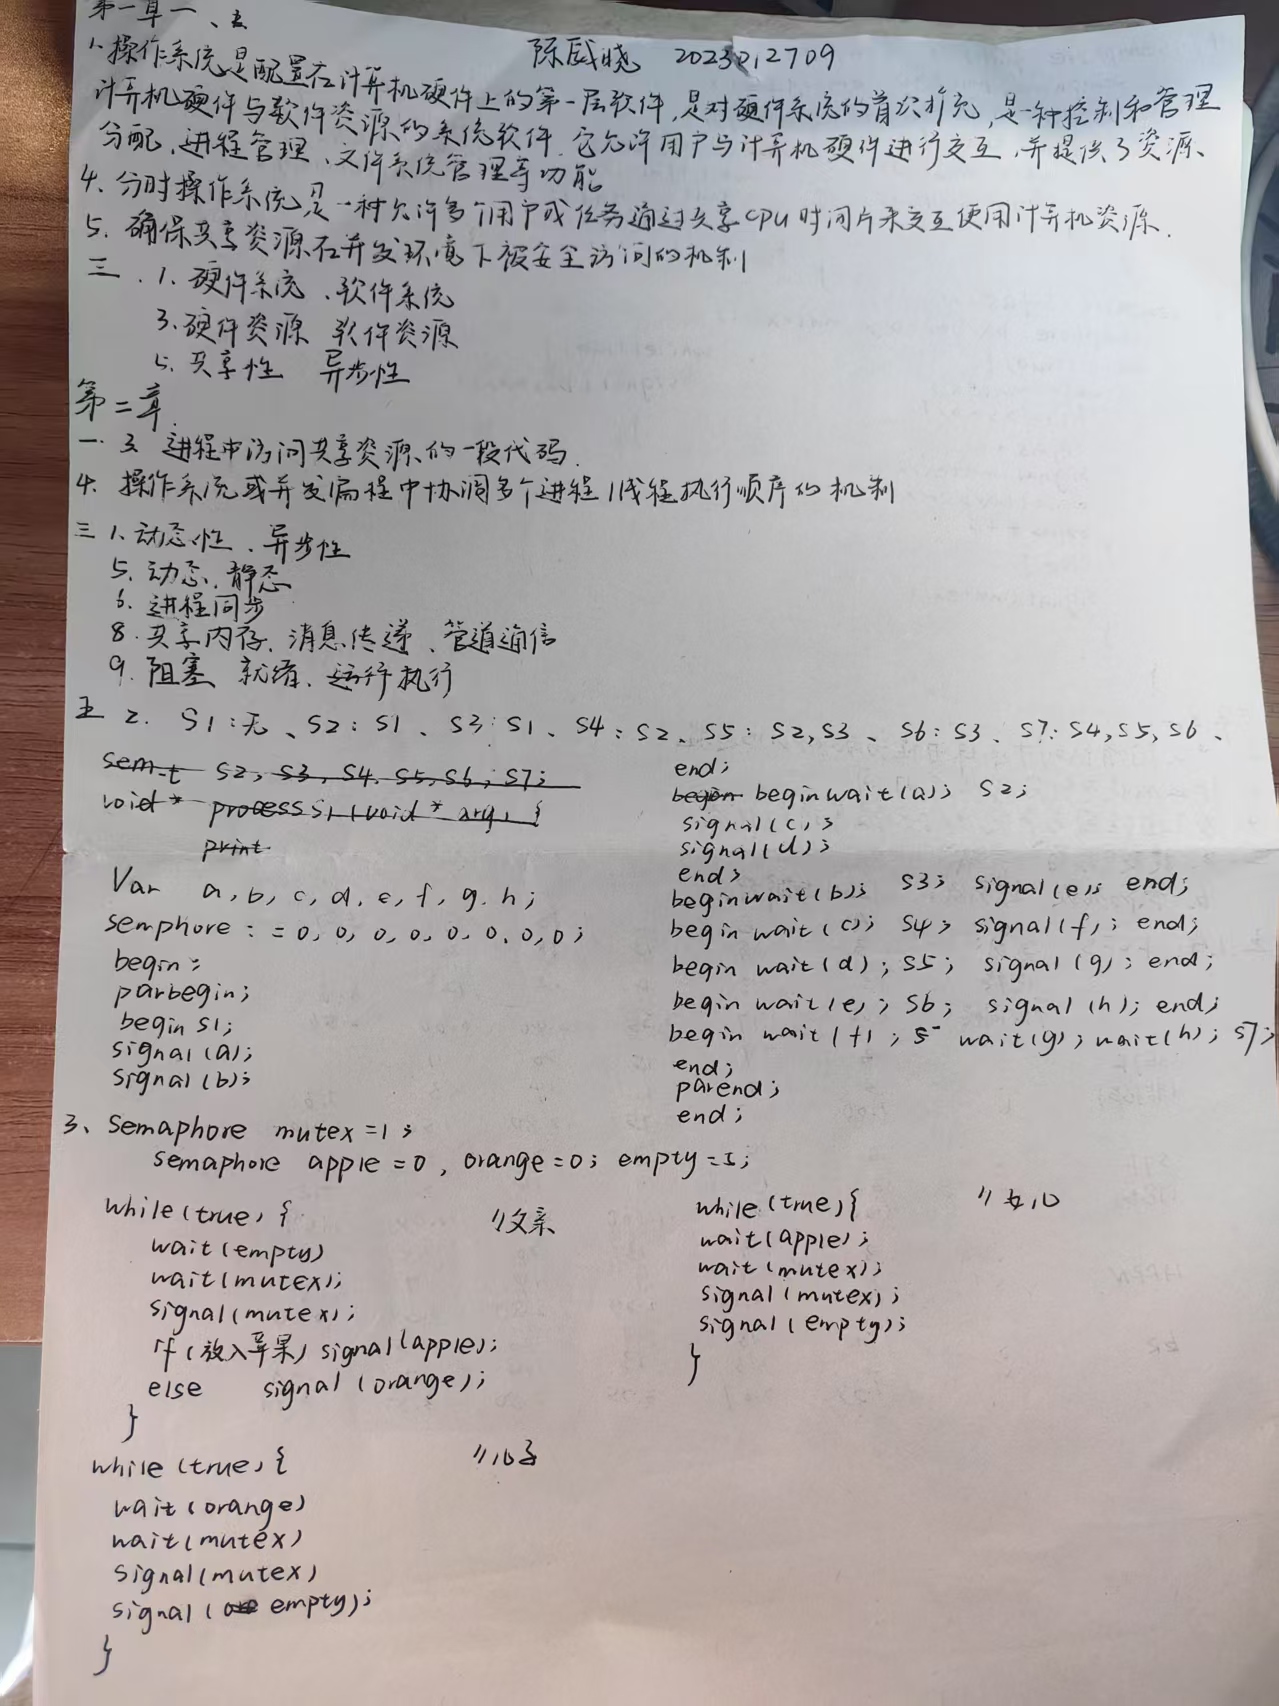 第一章一、
陈威晓 2023012709
1、操作系统是配置在计算机硬件上的第一层软件,是对硬件系统的首次扩充,是一种控制和管理
计算机硬件与软件资源的系统软件.它允许用户与计算机硬件进行交互,并提供了资源、
分配、进程管理、文件系统管理等功能
4、分时操作系统是一种允许多个用户或任务通过共享CPU时间片来交互使用计算机资源.
5、确保共享资源在并发环境下被安全访问的机制
三.1、硬件系统、软件系统
3、硬件资源 软件资源
5、共享性 异步性
第二章.
一. 3 进程中访问共享资源的一段代码.
4、操作系统或并发编程中协调多个进程/线程执行顺序的机制
三 1、动态性、异步性
5、动态、静态
6、进程同步
8、共享内存、消息传递、管道通信
9、阻塞 就绪、运行执行
五 2. S1:无、S2:S1、S3:S1、S4:S2、S5:S2,S3、S6:S3、S7:S4,S5,S6、
sem_t S2,S3,S4,S5,S6,S7;
void* process S1(void* arg) {
print
Var a,b,c,d,e,f,g.h;
semphore:=0,0,0,0,0,0,0,0;
begin:
parbegin;
begin S1;
signal(a);
signal(b);
end;
begin wait(a); S2;
signal(c);
signal(d);
end;
begin wait(b); S3; signal(e); end;
begin wait(c); S4; signal(f); end;
begin wait(d); S5; signal(g); end;
begin wait(e); S6; signal(h); end;
begin wait(f); wait(g); wait(h); S7;
end;
parend;
end;
3、Semaphore mutex=1;
semaphore apple=0, orange=0; empty=1;
while(true){ //父亲
wait(empty)
wait(mutex);
signal(mutex);
if(放入苹果) signal(apple);
else signal(orange);
}
while(true){ //女儿
wait(apple);
wait(mutex);
signal(mutex);
signal(empty);
}
while(true){ //儿子
wait(orange)
wait(mutex)
signal(mutex)
signal(empty);
}